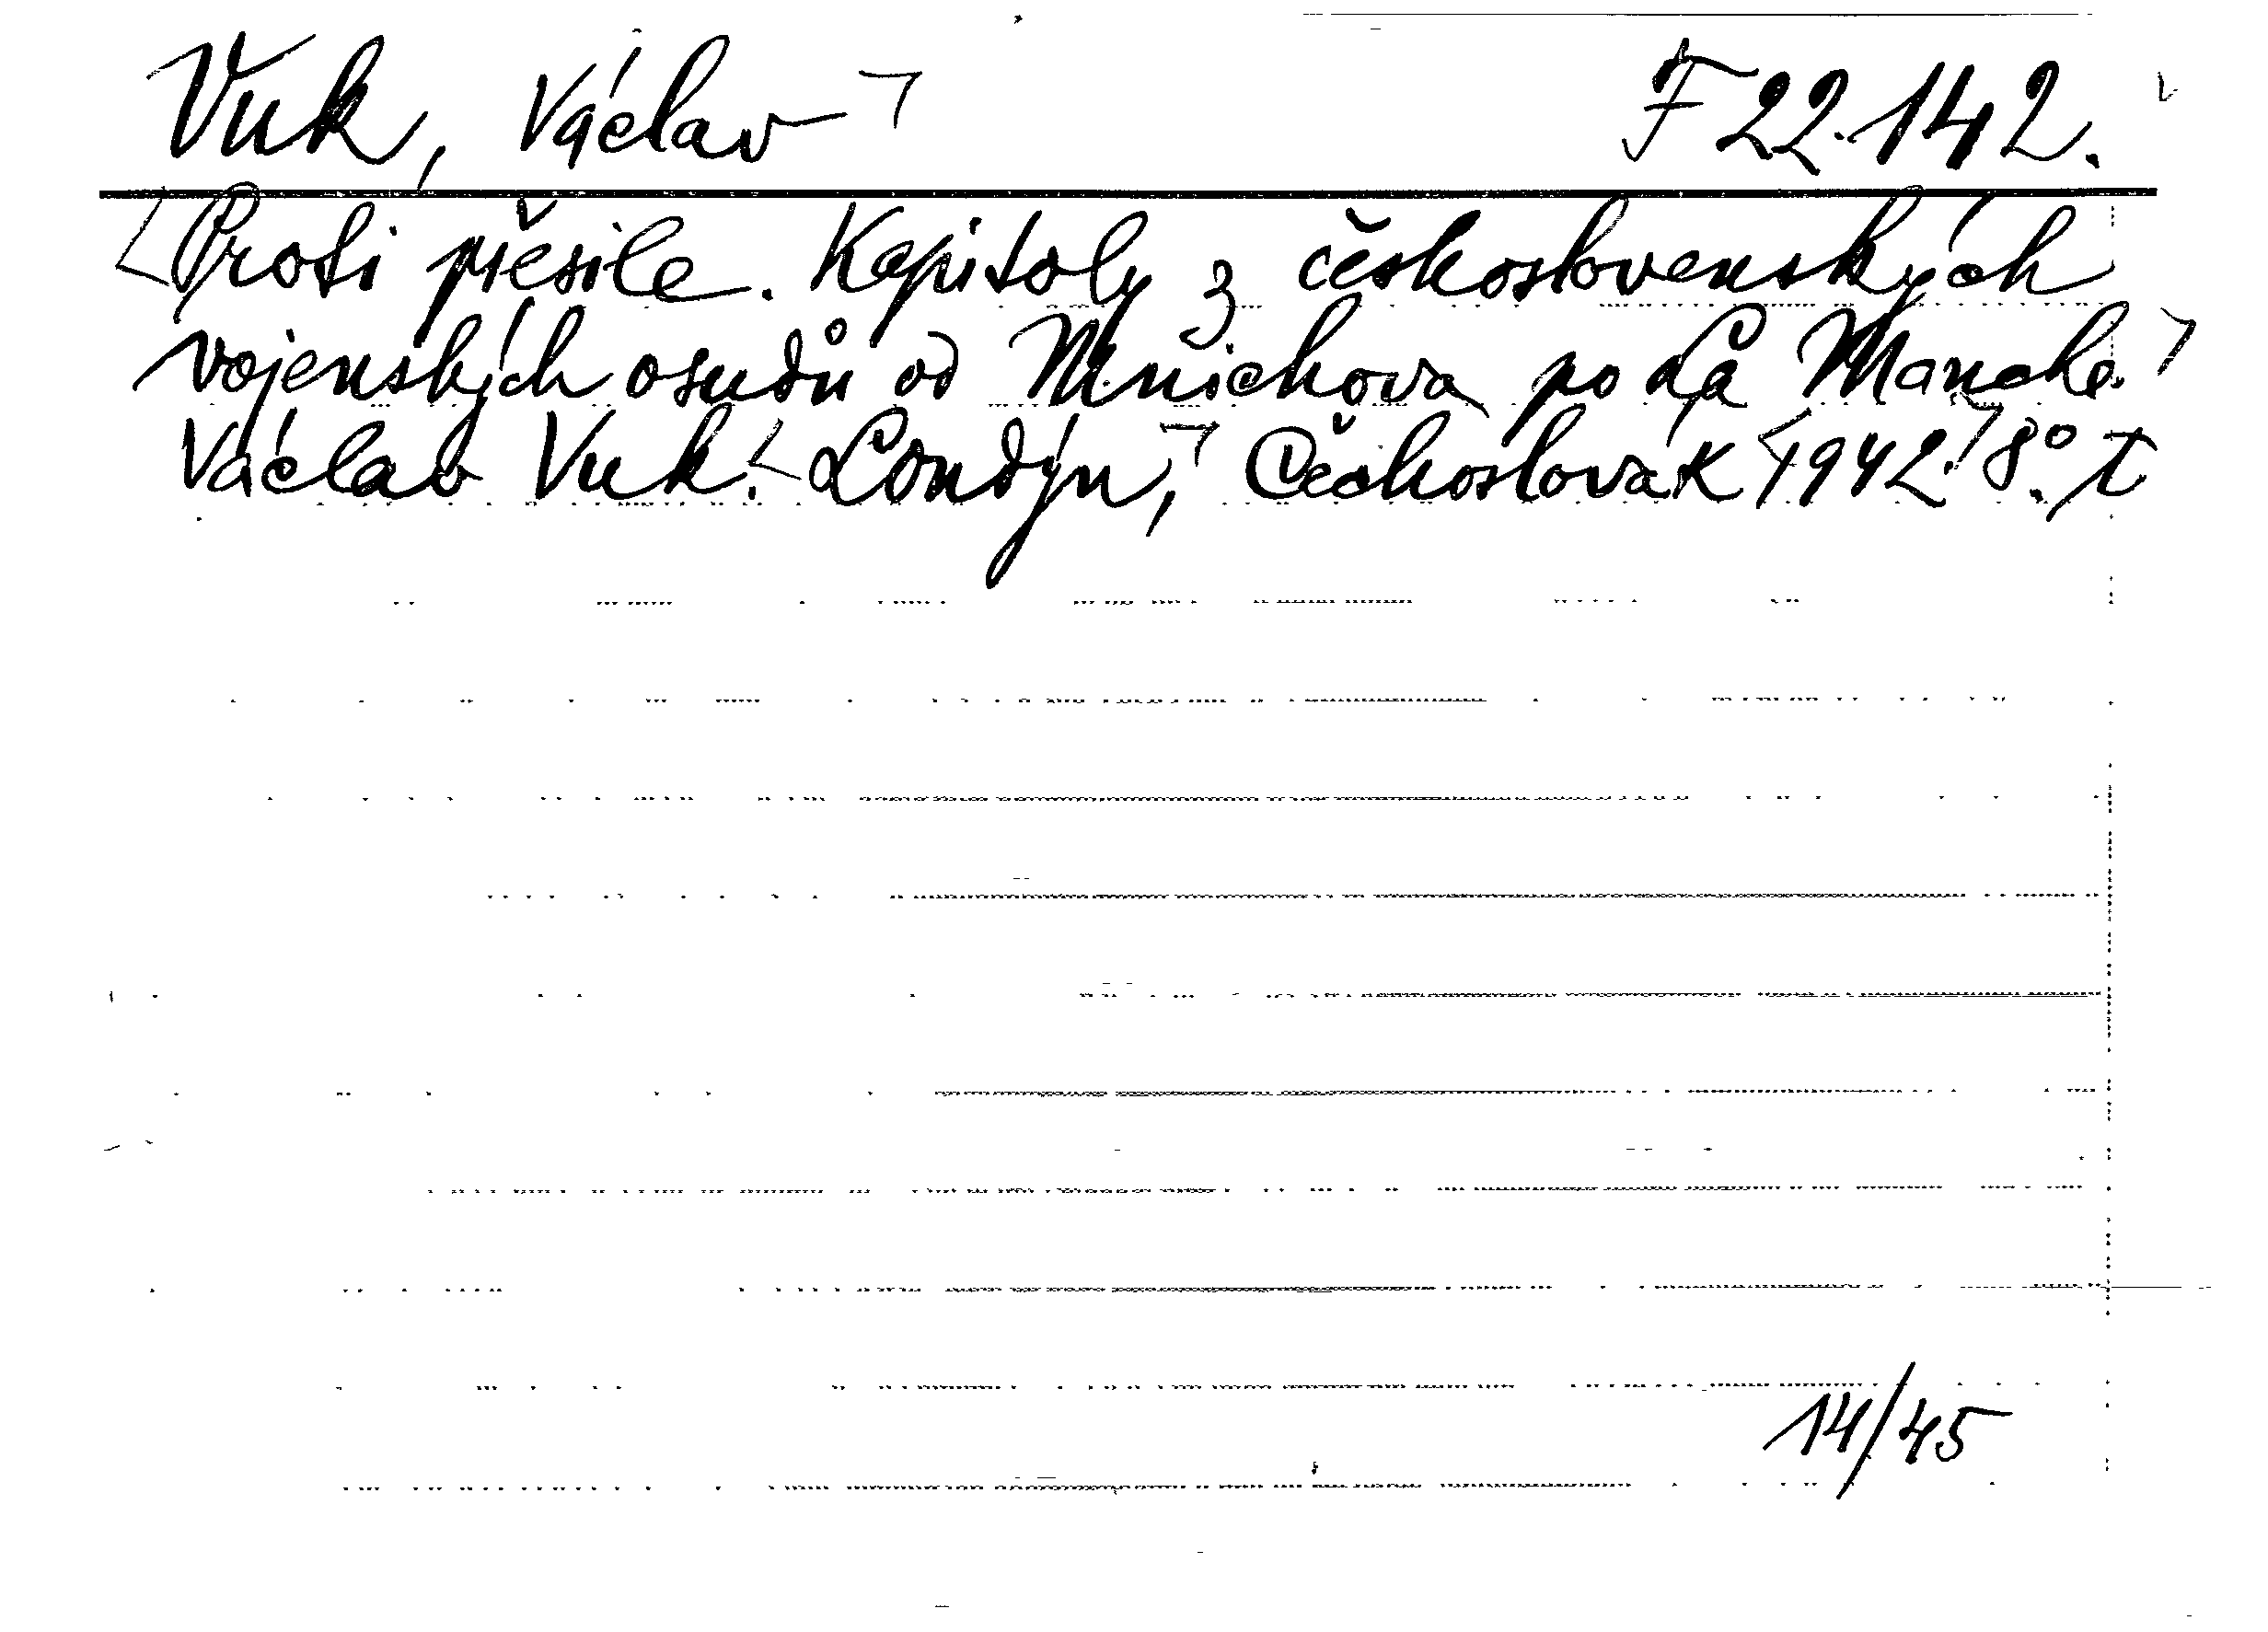 Vuk, Václav F 22.142.
Proti přesile. Kapitoly z československých
vojenských osudů od Mnichova po La Manche.
Václav Vuk. Londýn, Čechoslovák 1942. 8°. t
14/45